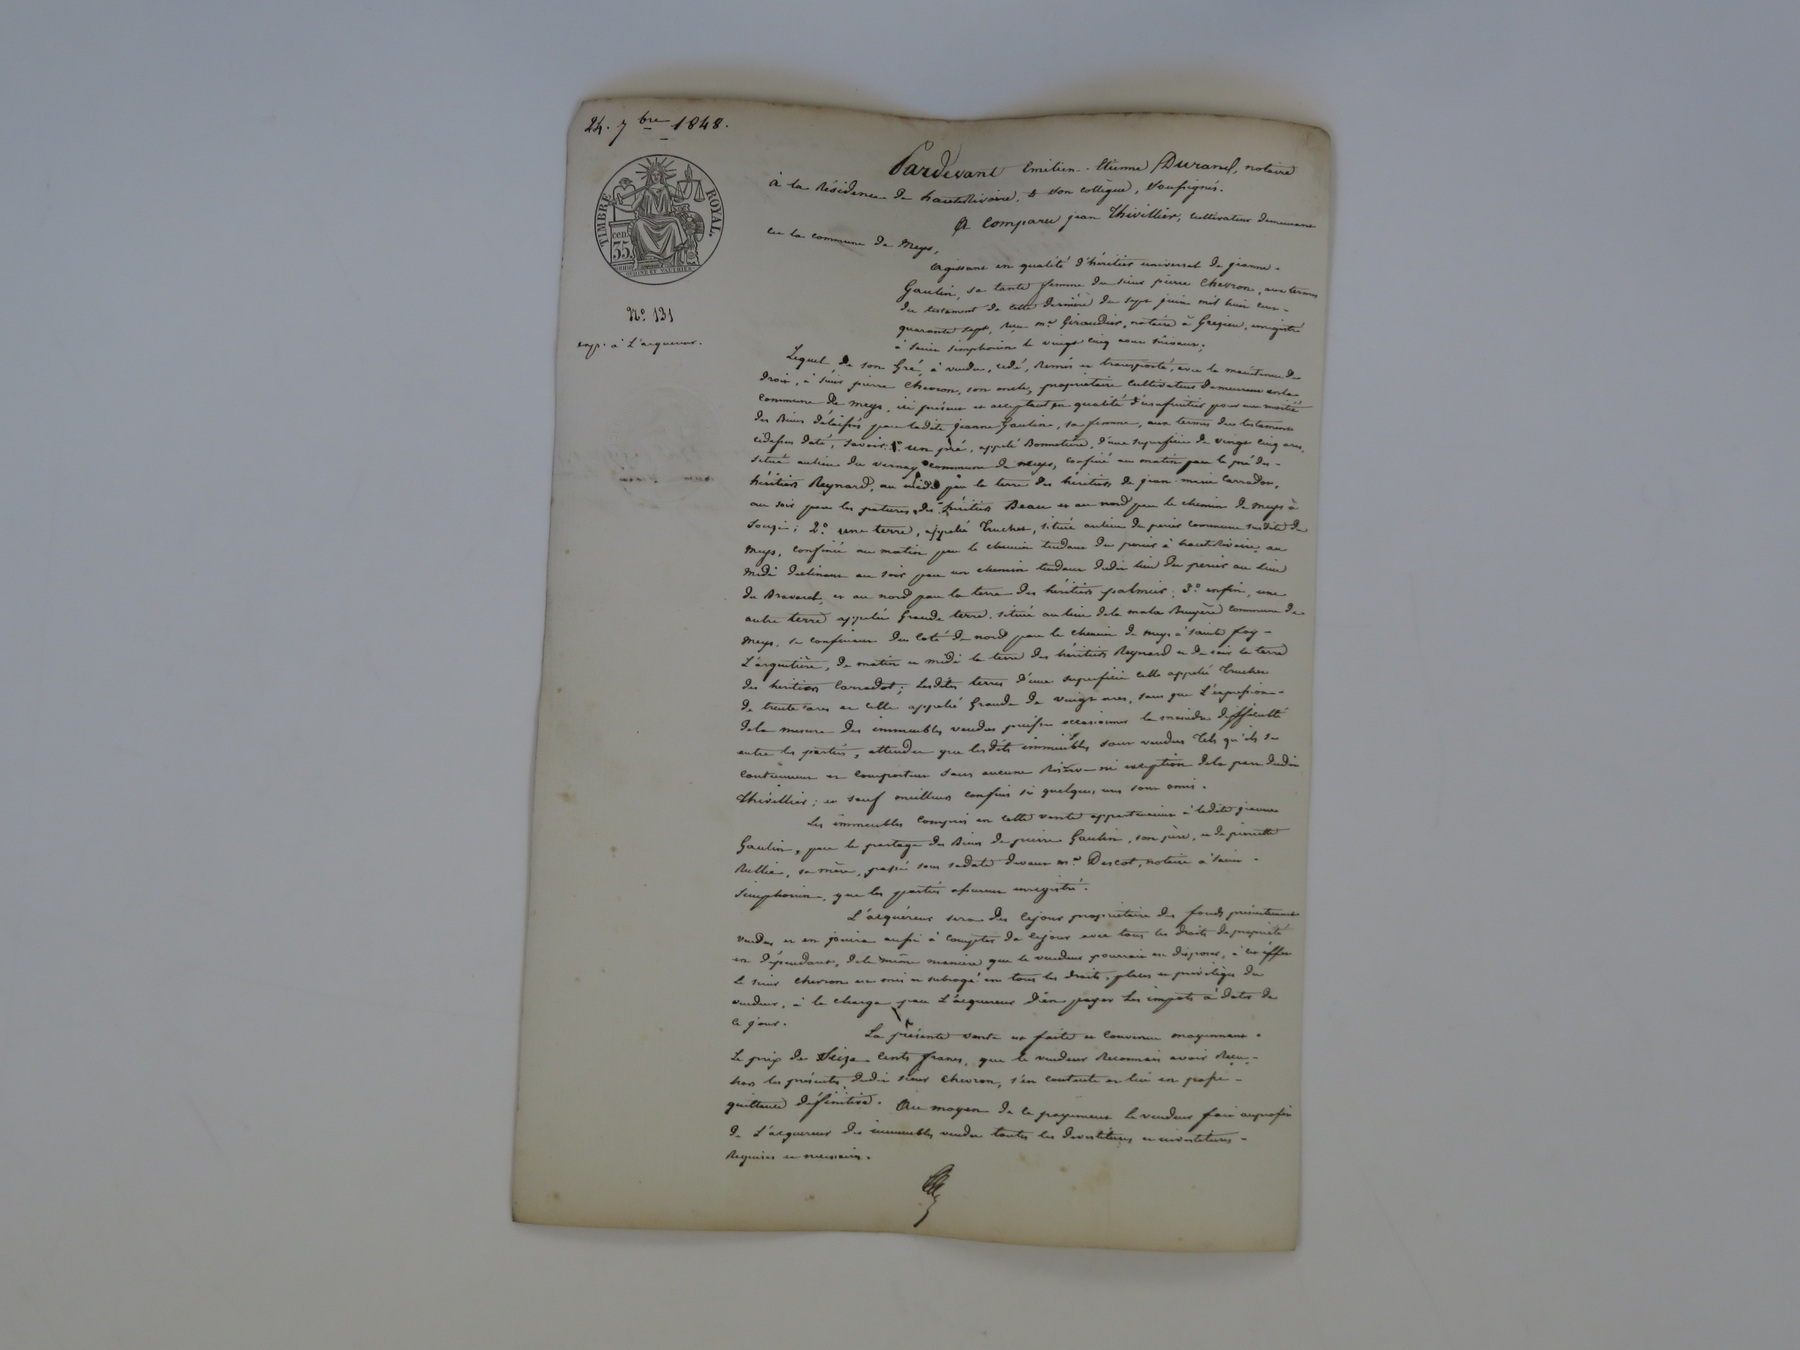 24. 7bre 1848.
Pardevant Emilien-Etienne Durand, notaire
à la Résidence de hauteRivoire, & son collègue, soussignés.
A Comparu jean Thivillier, cultivateur demeurant
en la commune de Meys,
TIMBRE ROYAL.
cen. 35
Nº 131
exp. à L'acquereur.
agissant en qualité d'héritier universel de jeanne-
Gaulin, sa tante femme du sieur pierre Chevron, aux termes
du testament de cette dernière du sept juin mil huit cent-
quarante sept, reçu me Giraudier, notaire à Grezieu, enregistré
à saint simphorien le vingt cinq aout suivant;
Lequel de son Gré, à vendu, cédé, Remis et transporté, avec la maintenue de
droit, à sieur pierre Chevron, son oncle, propriétaire cultivateur demeurant en la
commune de Meys, ici présent et acceptant en qualité d'usufruitier pour une moitié
des Biens délaissés par ladite jeanne Gaulin, sa femme, aux termes du testament
cidessus daté, Savoir: 1º un pré, appelé Bonnetière, d'une superficie de vingt cinq ares,
situé aulieu du vernay commune de meys, confiné au matin par le pré des-
héritiers Reynard, au midi par la terre des héritiers de jean marie Carradot,
au soir par les patures des héritiers Beau et au nord par le chemin de meys à
Souzi; 2º une terre, appelée Truchet, située aulieu du perier commune susdite de
Meys, confinée au matin par le chemin tendant du perier à hauteRivoire, au
midi declinant au soir par un chemin tendant dudit lieu du perier au lieu
du Bravard, et au nord par la terre des héritiers palmier; 3º enfin, une
autre terre appelée Grande terre, située aulieu de la mala Bruyère commune de
Meys, se confinant du coté de nord par le chemin de meys à sainte foy-
L'argentière, de matin et midi la terre des héritiers Reynard et de soir la terre
des héritiers Carradot; Lesdites terres d'une superficie celle appelée Truchet
de trente ares et celle appelée Grande de vingt ares, sans que L'expression-
de la mesure des immeubles vendus puisse occasionner la moindre difficulté
entre les parties, attendu que lesdits immeubles sont vendus Tels qu'ils se
contiennent et comportent sans aucune Réserve ni exception de la part dudit
Thivillier; et sauf meilleurs confins si quelques uns sont omis.
Les immeubles compris en cette vente appartenaient à ladite jeanne
Gaulin, par le partage des Biens de pierre Gaulin, son père, et de pierrette
Rullie, sa mère, passé sous sadate devant me Descot, notaire à saint-
simphorien, que les parties assurent enregistré.
L'acquéreur sera dès cejour propriétaire des fonds présentement
vendus et en jouira aussi à compter de cejour avec tous les droits de propriété
en dépendant, de la même manière que le vendeur pourrait en disposer, à cet effet
le sieur Chevron est mis et subrogé en tous les droits, places et privilèges du
vendeur, à la charge par L'acquereur d'en payer les impots à dater de
ce jour.
La présente vente est faite et convenue moyennant-
Le prix de Seize Cents francs, que le vendeur Reconnait avoir Reçu-
hors les présentes, dudit sieur Chevron, s'en contente et lui en passe-
quittance définitive. Au moyen de ce payement le vendeur fait auprofit
de L'acquereur des immeubles vendus toutes les devestitures et investitures-
Requises et nécessaires.